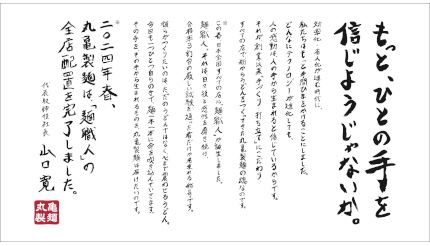 もっと、ひとの手を
信じようじゃないか。
効率化、省人化が進む時代に、
私たちはもっと手間ひまをかけることにしました。
どんなにテクノロジーが進化しても、
人の感動は、人の手から生まれると信じているからです。
それが創業以来、手づくり、打ち立てにこだわり
すべての店で粉からうどんをつくってきた丸亀製麺の誇りなのです。
この春、日本全国すべての店に、麺職人が誕生しました。
麺職人、それは日々技と感性を磨き続け、
合格率３割台の厳しい試験を通った者だけが名乗れる称号です。
僕らがつくりたいのは、ただのうどんではなく、心を震わせるうどん。
今日も一つひとつ、自らの手で、麺一本一本に命を吹き込んでいきます。
その手を、その手から生まれるものを、丸亀製麺は届けたいのです。
二〇二四年春、
丸亀製麺は、「麺職人」の
全店配置を完了しました。
代表取締役社長 山口 寛
丸亀製麺